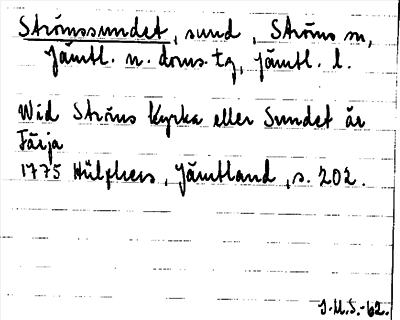 Strömssundet, sund, Ströms sn,
Jämtl. n. doms. tg, jämtl. l.
Wid Ströms Kyrka eller Sundet är
Färja
1775 Hülphers, Jämtland, s. 202.
J.M.S.-62.